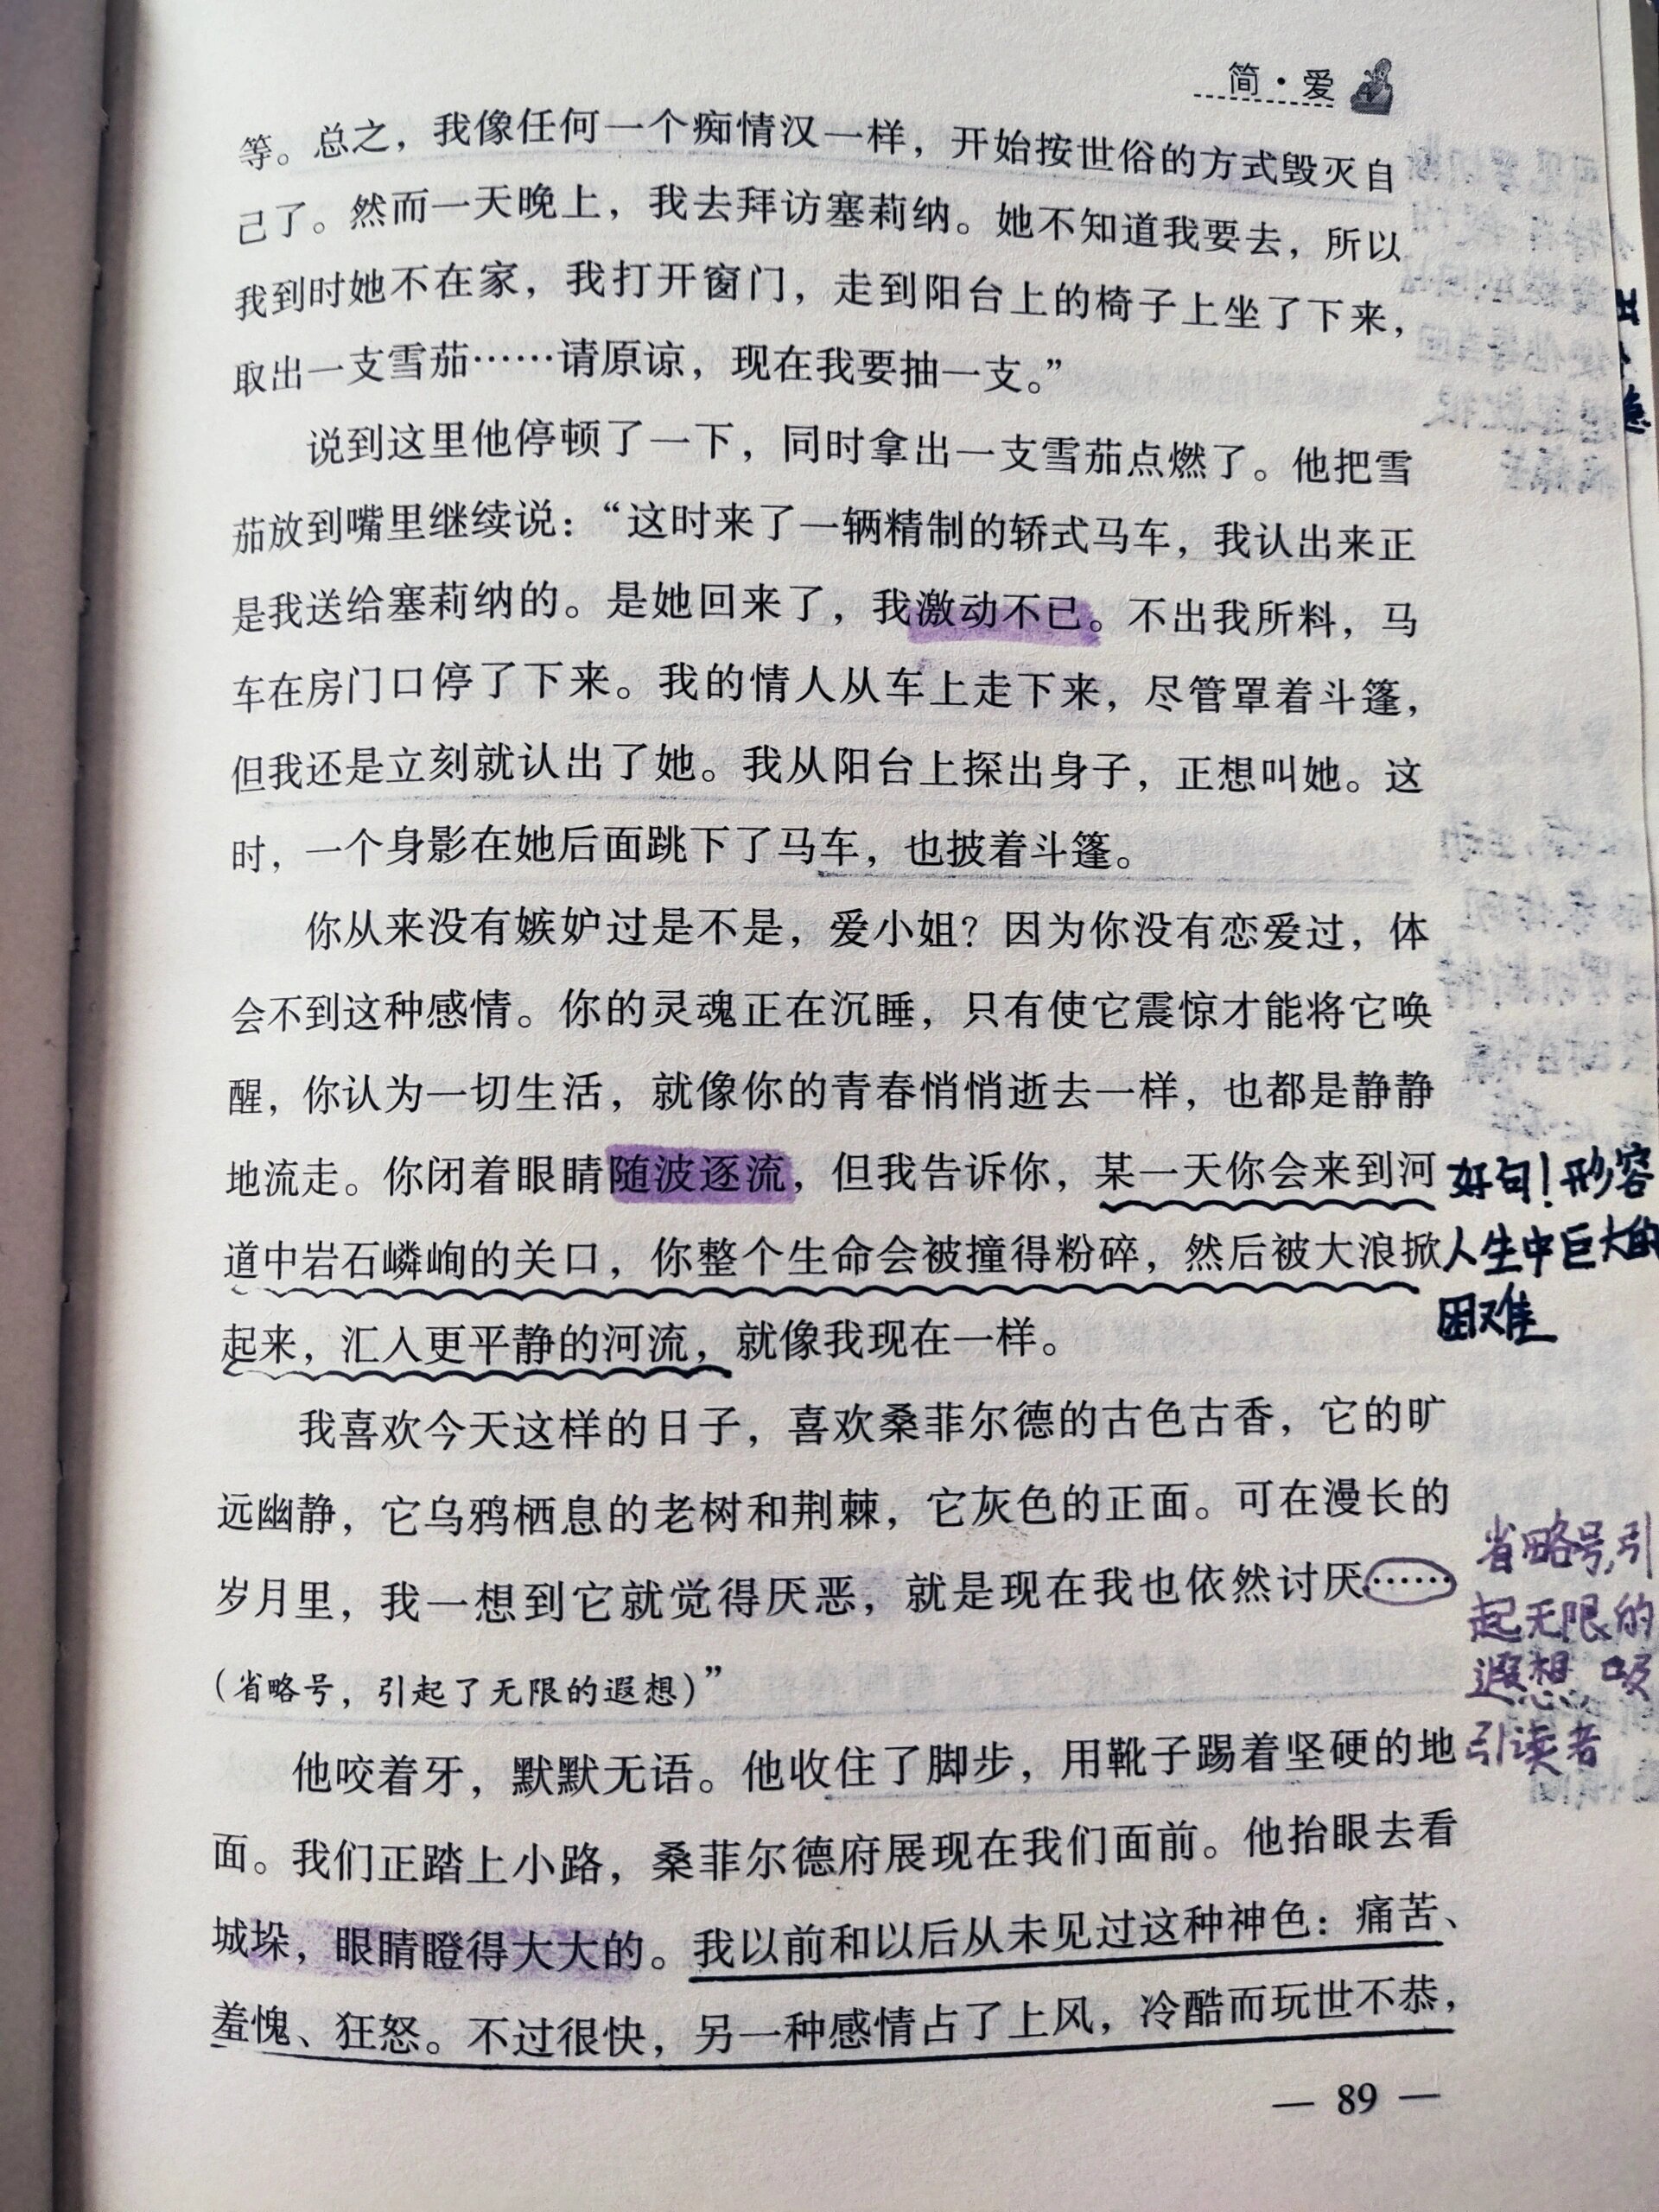 简·爱
等。总之，我像任何一个痴情汉一样，开始按世俗的方式毁灭自
己了。然而一天晚上，我去拜访塞莉纳。她不知道我要去，所以
我到时她不在家，我打开窗门，走到阳台上的椅子上坐了下来，
取出一支雪茄……请原谅，现在我要抽一支。”
说到这里他停顿了一下，同时拿出一支雪茄点燃了。他把雪
茄放到嘴里继续说：“这时来了一辆精制的轿式马车，我认出来正
是我送给塞莉纳的。是她回来了，我激动不已。不出我所料，马
车在房门口停了下来。我的情人从车上走下来，尽管罩着斗篷，
但我还是立刻就认出了她。我从阳台上探出身子，正想叫她。这
时，一个身影在她后面跳下了马车，也披着斗篷。
你从来没有嫉妒过是不是，爱小姐？因为你没有恋爱过，体
会不到这种感情。你的灵魂正在沉睡，只有使它震惊才能将它唤
醒，你认为一切生活，就像你的青春悄悄逝去一样，也都是静静
地流走。你闭着眼睛随波逐流，但我告诉你，某一天你会来到河
道中岩石嶙峋的关口，你整个生命会被撞得粉碎，然后被大浪掀
起来，汇入更平静的河流，就像我现在一样。
好句！形容
人生中巨大的
困难
我喜欢今天这样的日子，喜欢桑菲尔德的古色古香，它的旷
远幽静，它乌鸦栖息的老树和荆棘，它灰色的正面。可在漫长的
岁月里，我一想到它就觉得厌恶，就是现在我也依然讨厌……
（省略号，引起了无限的遐想）”
省略号，引
起无限的
遐想 吸
引读者
他咬着牙，默默无语。他收住了脚步，用靴子踢着坚硬的地
面。我们正踏上小路，桑菲尔德府展现在我们面前。他抬眼去看
城垛，眼睛瞪得大大的。我以前和以后从未见过这种神色：痛苦、
羞愧、狂怒。不过很快，另一种感情占了上风，冷酷而玩世不恭，
— 89 —